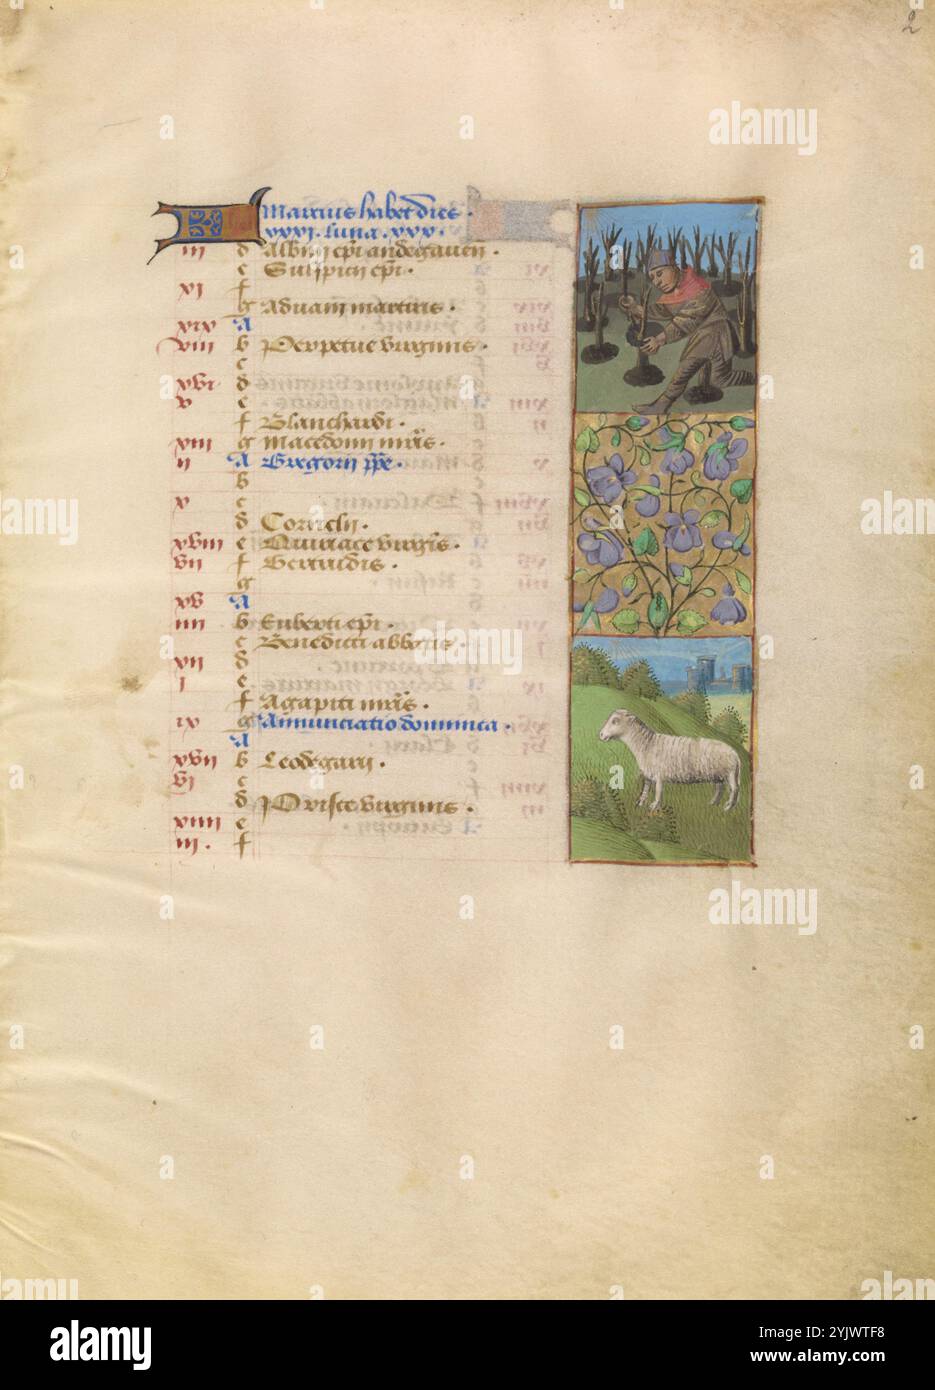 2
Marcius habet dies
xxxi. luna. xxx.
iii d Albini epi andegaven
e Sulpicii epi.
xi f
g Adriani martiris.
xix A
viii b Perpetue virginis.
c
xvi d
v e
f Blanchardi.
xiii g Macedonii mris.
ii A Gregorii ppe.
b
x c
d Cornelii.
xviii e
vii f Gertrudis.
g
xv A
iiii b Euberti epi.
c Benedicti abbatis.
xii d
i e
f Agapiti mris.
ix g Annunciatio dominica.
A
xvii b Leodegarii.
vi c
d Prisce virginis.
xiiii e
iii. f
alamy
Image ID: 2YJWTF8
www.alamy.com